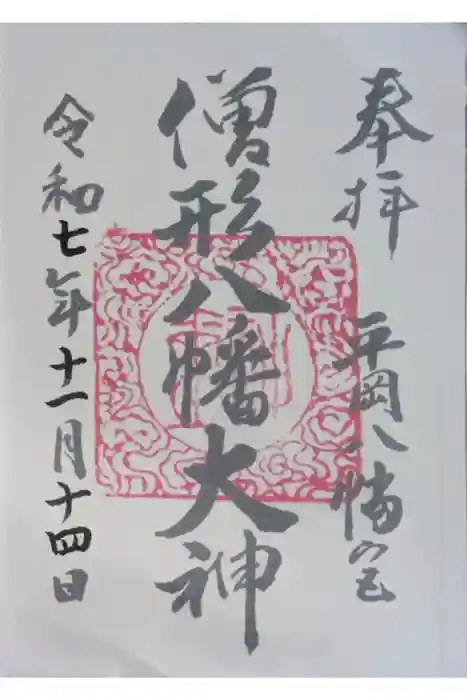 奉拝
平岡八幡宮
僧形八幡大神
令和七年十一月十四日